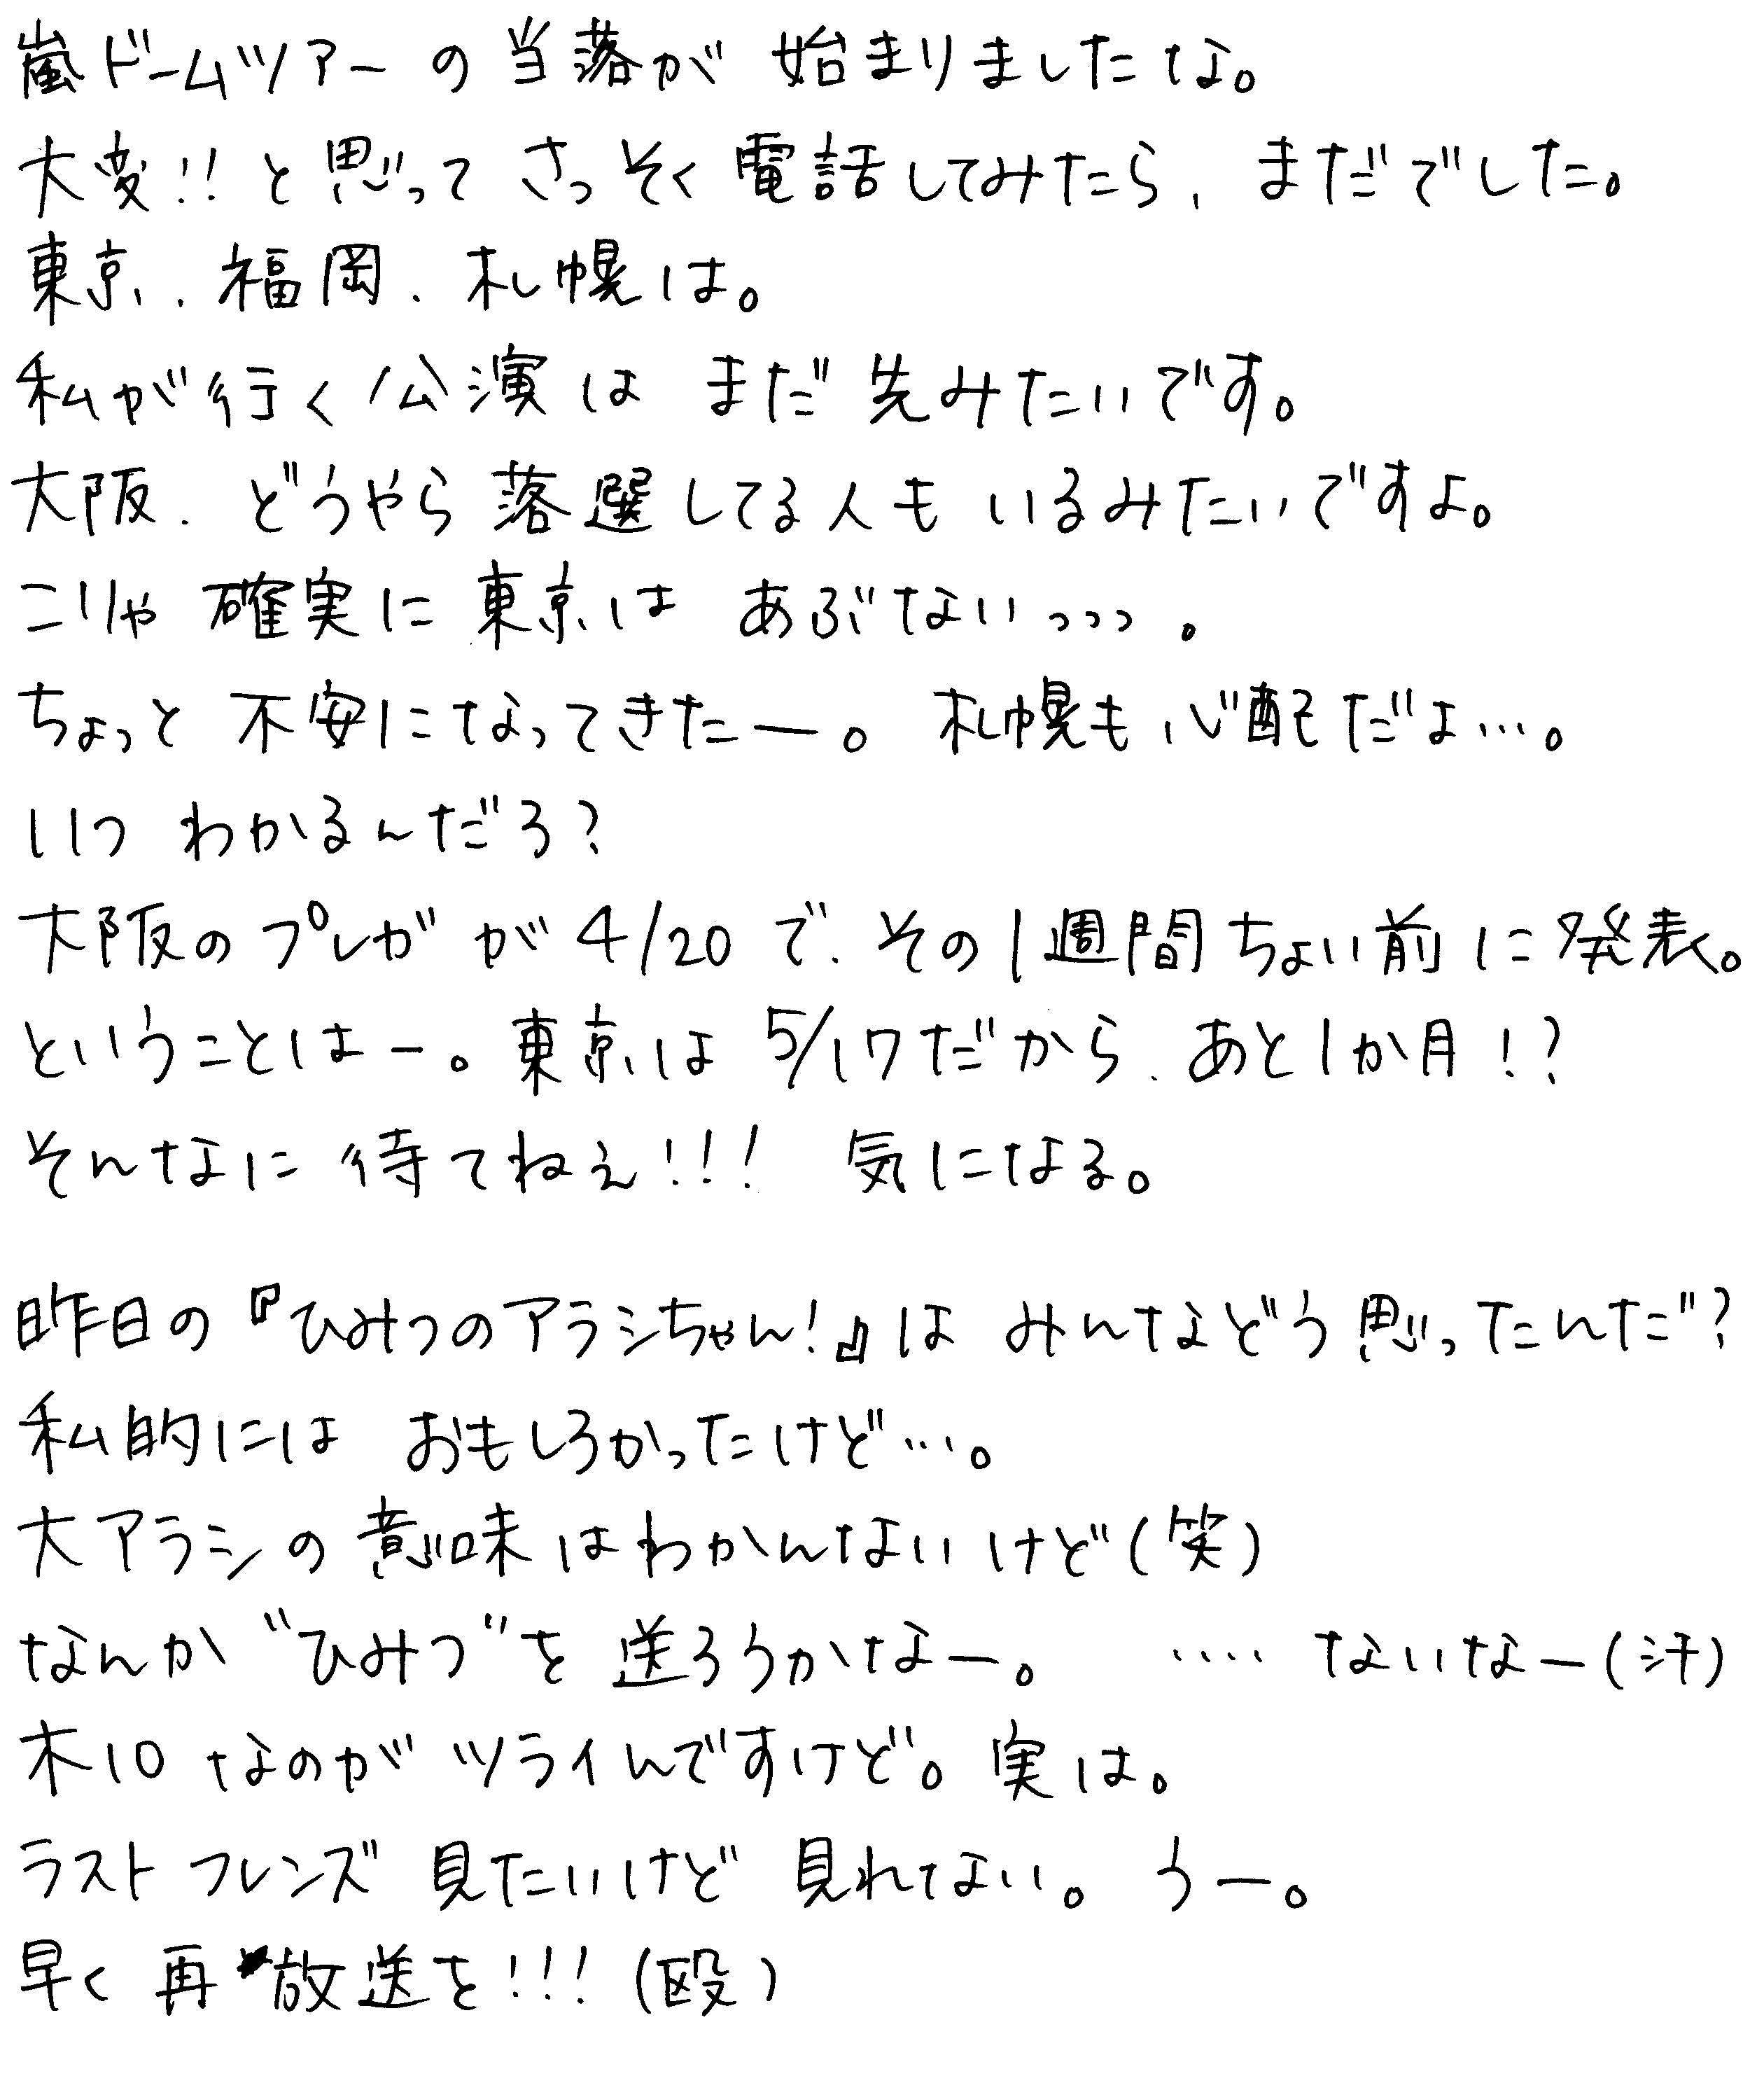 嵐ドームツアーの当落が始まりましたな。
大変!!と思ってさっそく電話してみたら、まだでした。
東京、福岡、札幌は。
私が行く公演はまだ先みたいです。
大阪、どうやら落選してる人もいるみたいですよ。
こりゃ確実に東京はあぶないっっっ。
ちょっと不安になってきたー。札幌も心配だよ…。
いつわかるんだろ?
大阪のプレガが4/20で、その1週間ちょい前に発表。
ということはー。東京は5/17だから、あと1か月!?
そんなに待てねぇ!!! 気になる。
昨日の『ひみつのアラシちゃん!』はみんなどう思ったんだ?
私的にはおもしろかったけど…。
大アラシの意味はわかんないけど(笑)
なんか"ひみつ"を送ろうかなー。 ‥‥ないなー(汗)
木10なのがツライんですけど。実は。
ラストフレンズ見たいけど見れてない。うー。
早く再放送を!!!(殴)